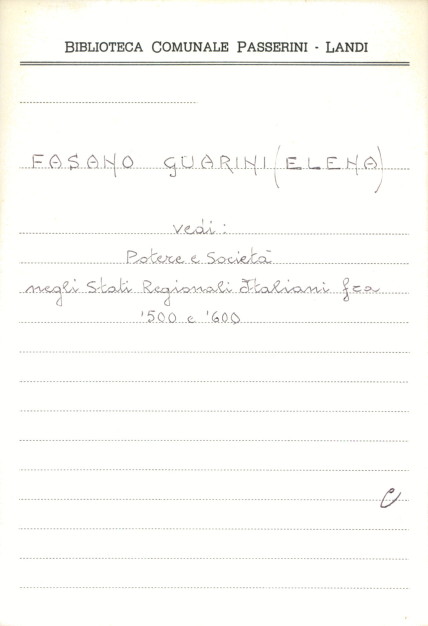 BIBLIOTECA COMUNALE PASSERINI - LANDI
FASANO GUARINI (ELENA)
vedi:
Potere e Società
negli Stati Regionali Italiani fra
'500 e '600
C